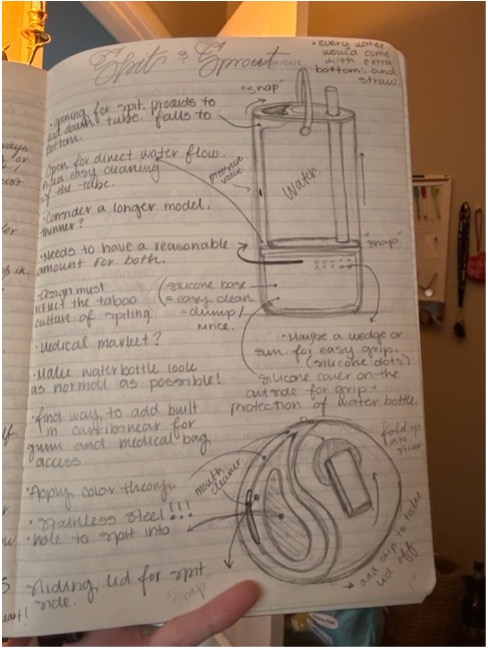 Spit & Sprout
• every water
would come
with extra
bottoms and
straw.
"snap"
• opening for spit. proceeds to
down tube. falls to
bottom.
Open for direct water flow.
easy cleaning
of the tube.
pressure
valve
Water
• Consider a longer model.
thinner?
• Needs to have a reasonable
amount for both.
"snap"
• Design must
reflect the taboo
culture of spitting.
(silicone base
= easy clean
= dump/
rinse.
• Medical market?
• Maybe a wedge or
for easy grip.
(silicone dots)
• Make waterbottle look
as normal as possible!
silicone cover on the
outside for grip +
protection of water bottle.
• find way to add built
in for
gym and medical bag
access
fold up
into
straw
mouth
cleaner
• Apply color theory.
• Stainless steel!!!
• hole to spit into
add snap to take
lid off
sliding lid for spit
side.
snap